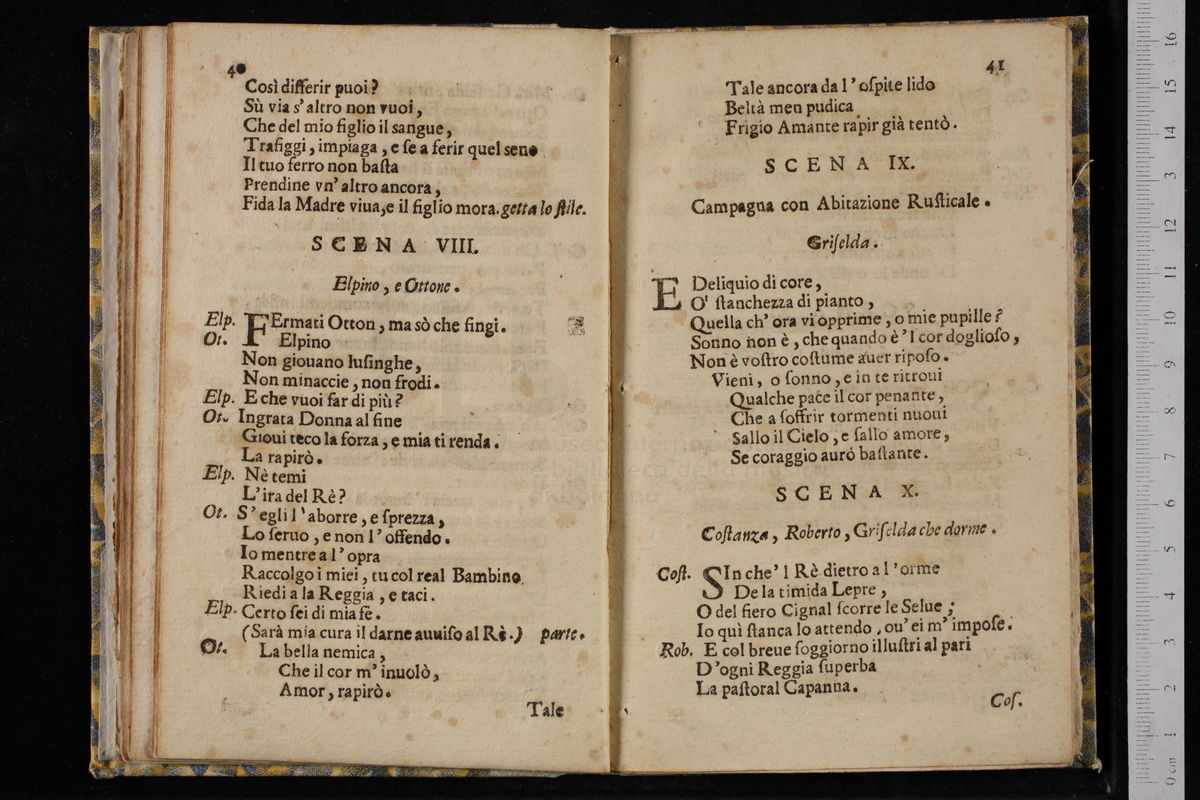 40
Così differir puoi?
Sù via s'altro non vuoi,
Che del mio figlio il sangue,
Trafiggi, impiaga, e ſe a ferir quel seno
Il tuo ferro non baſta
Prendine vn'altro ancora,
Fida la Madre viua, e il figlio mora. getta lo ſtile.
SCENA VIII.
Elpino, e Ottone.
Elp. FErmati Otton, ma sò che fingi.
Ot. Elpino
Non giouano luſinghe,
Non minaccie, non frodi.
Elp. E che vuoi far di più?
Ot. Ingrata Donna al fine
Gioui teco la forza, e mia ti renda.
La rapirò.
Elp. Nè temi
L'ira del Rè?
Ot. S'egli l'aborre, e ſprezza,
Lo ſeruo, e non l'offendo.
Io mentre a l'opra
Raccolgo i miei, tu col real Bambino
Riedi a la Reggia, e taci.
Elp. Certo ſei di mia fè.
(Sarà mia cura il darne auuiſo al Rè.) parte.
Ot. La bella nemica,
Che il cor m'inuolò,
Amor, rapirò.
Tale
41
Tale ancora da l'oſpite lido
Beltà men pudica
Frigio Amante rapir già tentò.
SCENA IX.
Campagna con Abitazione Ruſticale.
Griſelda.
E Deliquio di core,
O' ſtanchezza di pianto,
Quella ch'ora vi opprime, o mie pupille?
Sonno non è, che quando è 'l cor doglioſo,
Non è voſtro coſtume auer ripoſo.
Vieni, o ſonno, e in te ritroui
Qualche pace il cor penante,
Che a ſoffrir tormenti nuoui
Sallo il Cielo, e ſallo amore,
Se coraggio aurò baſtante.
SCENA X.
Coſtanza, Roberto, Griſelda che dorme.
Coſt. SIn che 'l Rè dietro a l'orme
De la timida Lepre,
O del fiero Cignal ſcorre le Selue;
Io quì ſtanca lo attendo, ou'ei m'impoſe.
Rob. E col breue ſoggiorno illuſtri al pari
D'ogni Reggia ſuperba
La paſtoral Capanna.
Coſ.